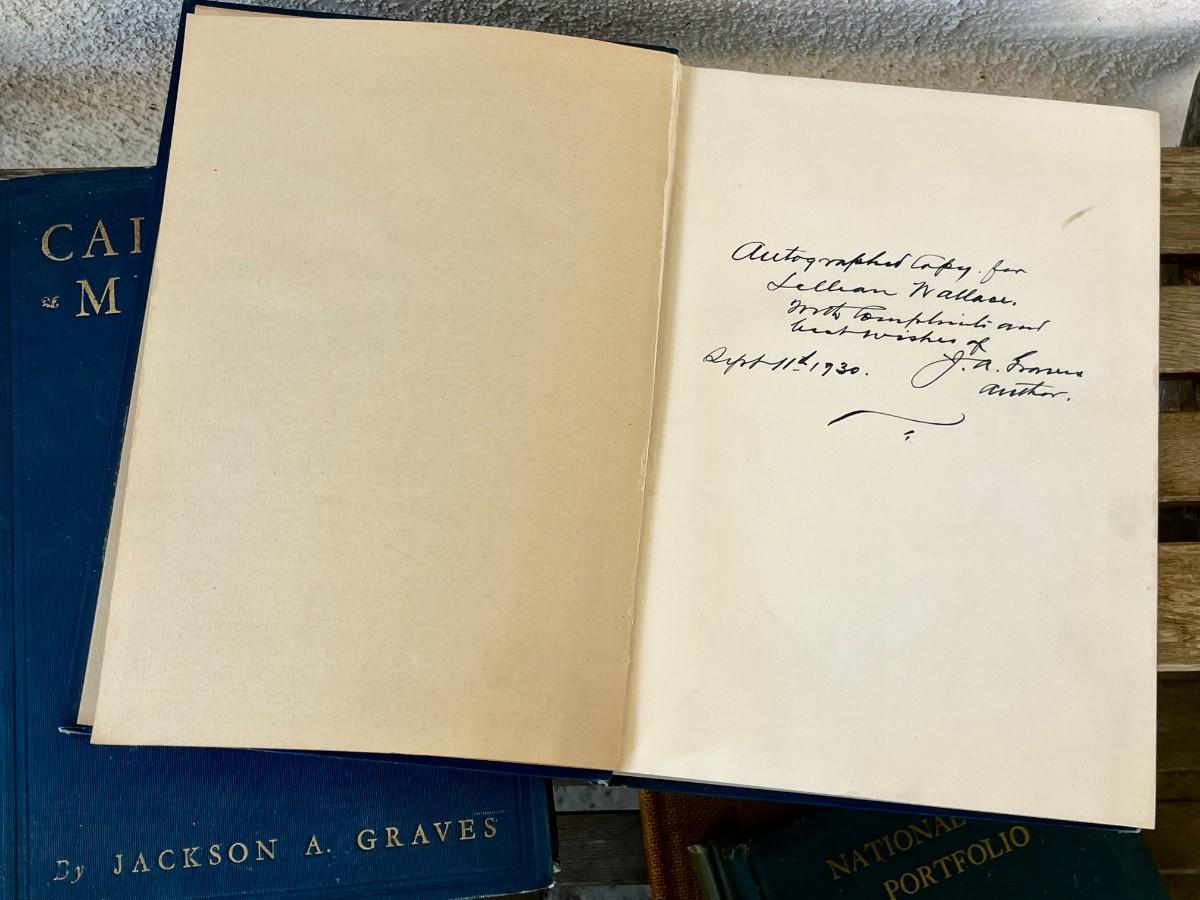 CAL
M
By JACKSON A. GRAVES
Autographed Copy. for
Lillian Wallace.
With Compliments and
best wishes of
Sept 11th 1930. J. A. Graves
author.
NATIONAL
PORTFOLIO